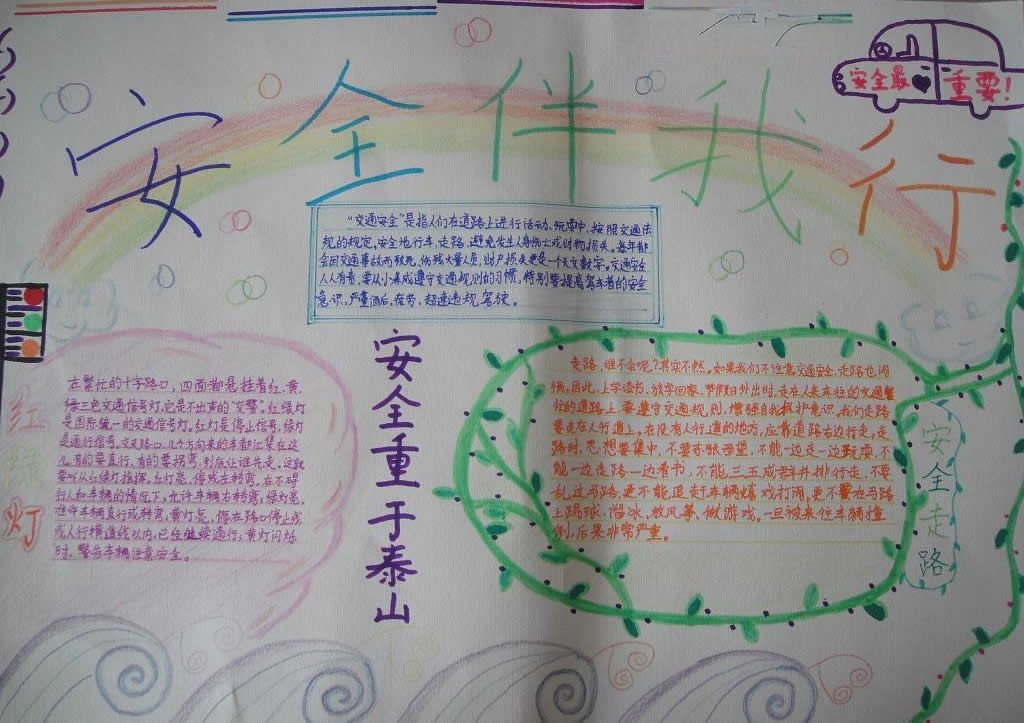 安全伴我行
安全最重要!
"交通安全"是指人们在道路上进行活动、玩耍中,按照交通法
规的规定,安全地行车、走路,避免发生人身伤亡或财物损失。每年都
会因交通事故而致死、伤残大量人员,财产损失更是一个天文数字。交通安全
人人有责,要从小养成遵守交通规则的习惯,特别要提高驾车者的安全
意识,严重酒后、疲劳、超速违规驾驶。
红绿灯
在繁忙的十字路口,四面都悬挂着红、黄、
绿三色交通信号灯,它是不出声的"交警"。红绿灯
是国际统一的交通信号灯。红灯是停止信号,绿灯
是通行信号。交叉路口,几个方向来的车都汇集在这
儿,有的要直行,有的要拐弯,到底让谁先走,这就
要听从红绿灯指挥。红灯亮,停或左转弯,在不碍
行人和车辆的情况下,允许车辆右转弯;绿灯亮,
准许车辆直行或转弯;黄灯亮,停在路口停止线
或人行横道线以内,已经继续通行;黄灯闪烁
时,警告车辆注意安全。
安全重于泰山
走路,谁不会呢?其实不然。如果我们不注意交通安全,走路也闯
祸。因此,上学读书、放学回家、节假日外出时,走在人来车往的交通繁
忙的道路上,要遵守交通规则,增强自我救护意识。我们走路
要走在人行道上。在没有人行道的地方,应靠道路右边行走。走
路时,思想要集中,不要东张西望,不能一边走一边玩耍,不
能一边走路一边看书,不能三五成群并排行走,不要
乱过马路,更不能追赶车辆嬉戏打闹,更不要在马路
上踢球、溜冰、放风筝、做游戏。一旦被来往车辆撞
倒,后果非常严重。
安全走路